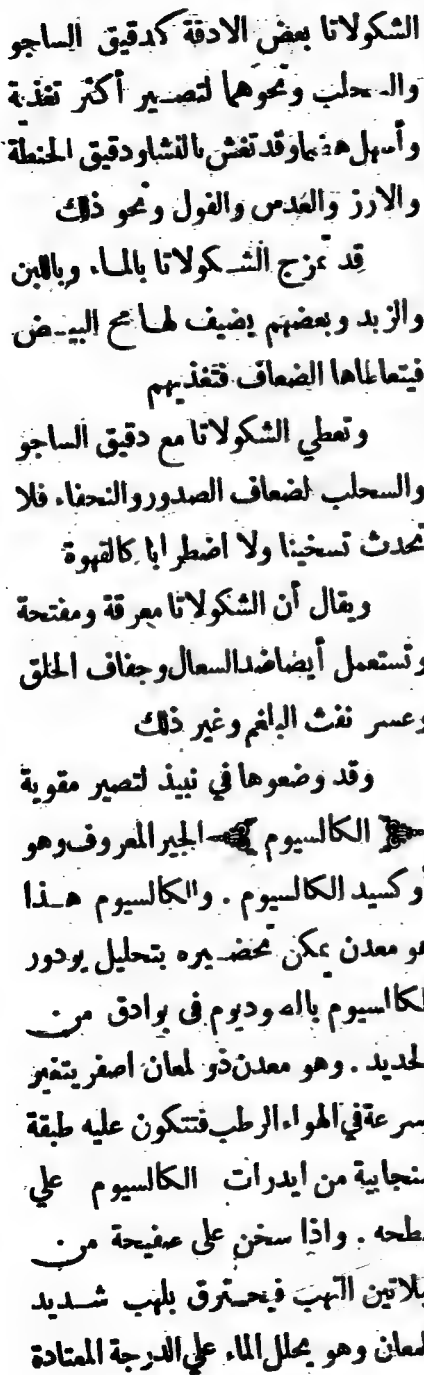 الشكولاتا بعض الادقة كدقيق الساجو
والسحلب ونحوهما لتصير أكثر تغذية
وأسهل هضما وقد تغش بالنشا ودقيق الحنطة
والارز والعدس والفول ونحو ذلك
قد تمزج الشكولاتا بالماء وباللبن
والزبد وبعضهم يضيف لها مح البيض
فيتعاطاها الضعاف فتغذيهم
وتعطي الشكولاتا مع دقيق الساجو
والسحلب لضعاف الصدور والنحفاء فلا
تحدث تسخينا ولا اضطرابا كالقهوة
ويقال أن الشكولاتا معرقة ومفتحة
وتستعمل أيضا ضد السعال وجفاف الحلق
وعسر نفث البلغم وغير ذلك
وقد وضعوها في نبيذ لتصير مقوية
﴿ الكالسيوم ﴾ الجير المعروف وهو
أوكسيد الكالسيوم . والكالسيوم هذا
هو معدن يمكن تحضيره بتحليل يودور
الكالسيوم بالصوديوم في بوادق من
الحديد . وهو معدن ذو لمعان اصفر يتغير
بسرعة في الهواء الرطب فتتكون عليه طبقة
سنجابية من ايدرات الكالسيوم علي
سطحه . واذا سخن على صفيحة من
بلاتين التهب فيحترق بلهب شديد
اللمعان وهو يحلل الماء علي الدرجة المعتادة